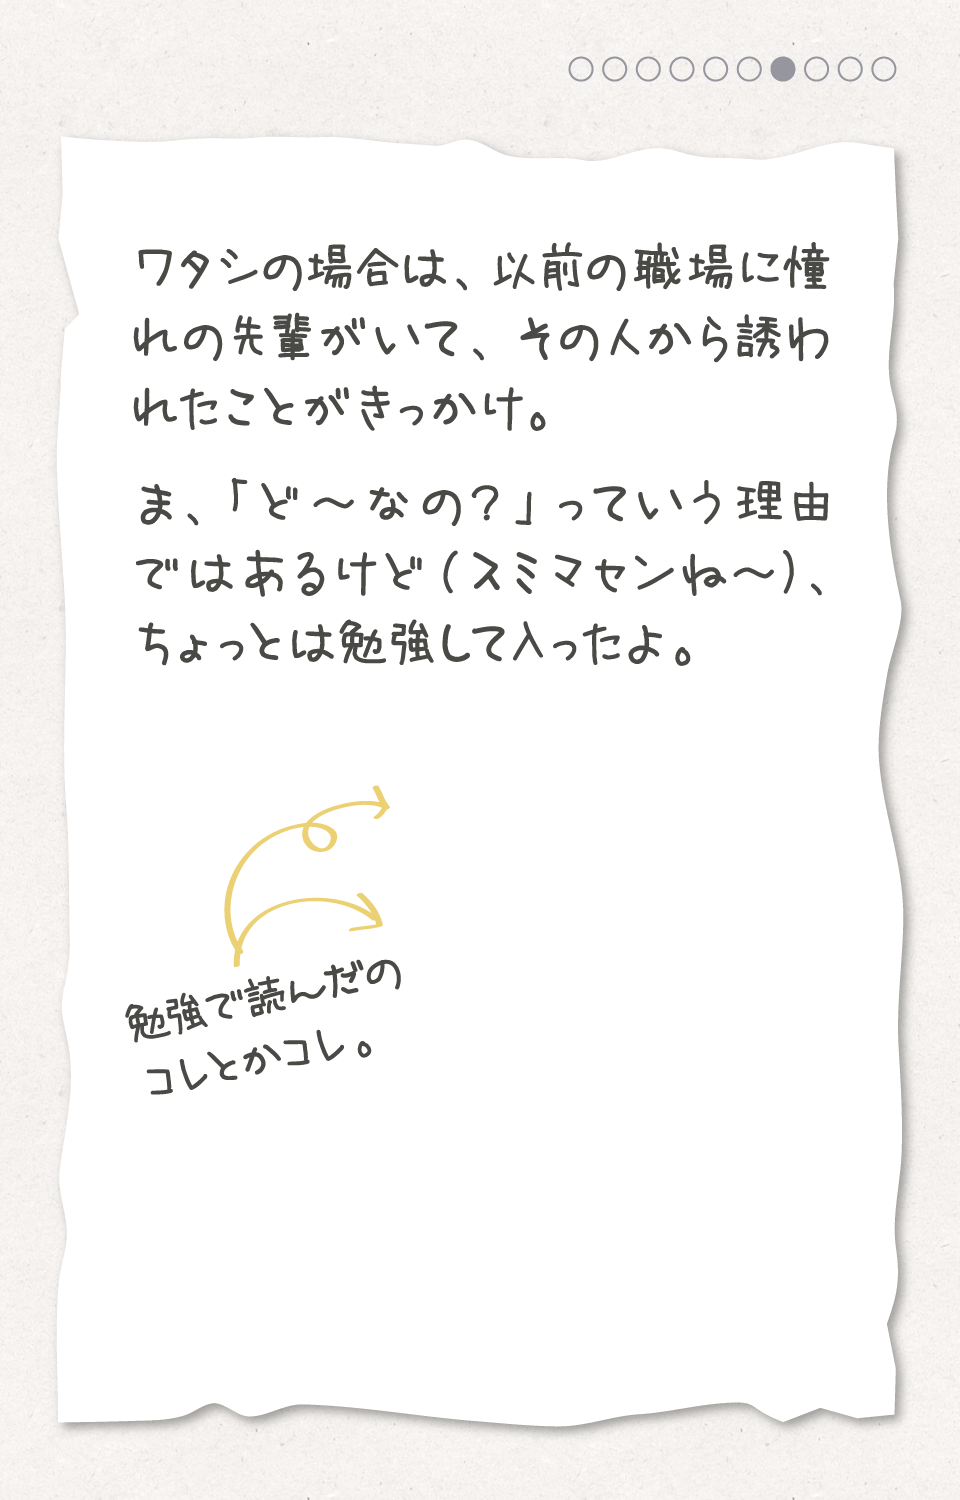 ワタシの場合は、以前の職場に憧
れの先輩がいて、その人から誘わ
れたことがきっかけ。
ま、「ど〜なの？」っていう理由
ではあるけど（スミマセンね〜）、
ちょっとは勉強して入ったよ。
勉強で読んだの
コレとかコレ。